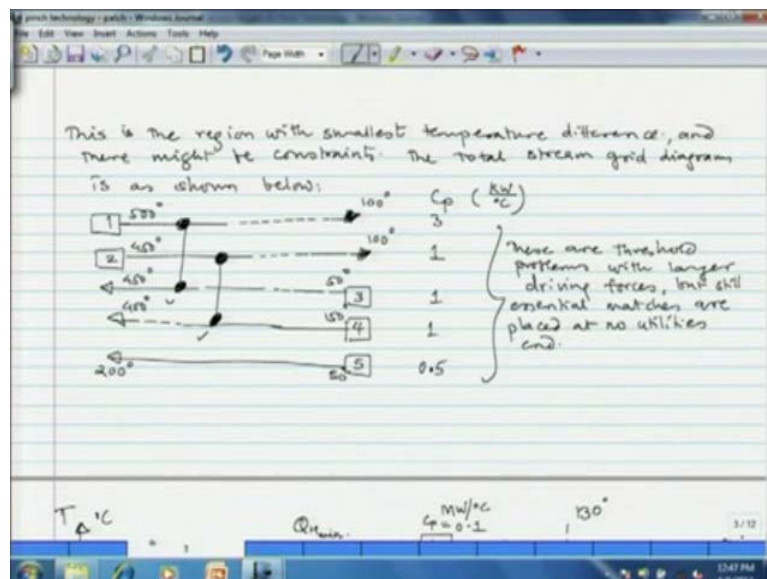 pinch technology - patch - Windows Journal
File Edit View Insert Actions Tools Help
Page Width
This is the region with smallest temperature difference, and
there might be constraints. The total stream grid diagram
is as shown below:
Cp (KW/°C)
1 500° 100° 3
2 450° 100° 1
450° 50° 3 1
400° 150° 4 1
200° 50° 5 0.5
These are threshold
problems with larger
driving forces, but still
essential matches are
placed at no utilities
end.
T °C QHmin. MW/°C Cp=0.1 130°
3/12
12:47 PM